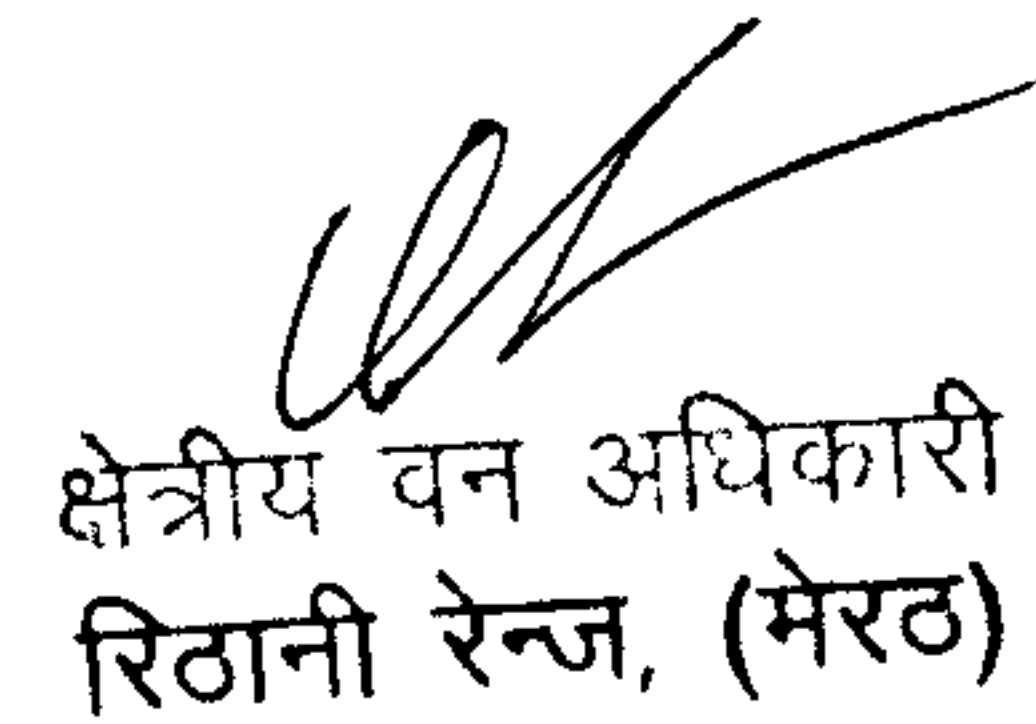 क्षेत्रीय वन अधिकारी
रिठानी रेन्ज, (मेरठ)